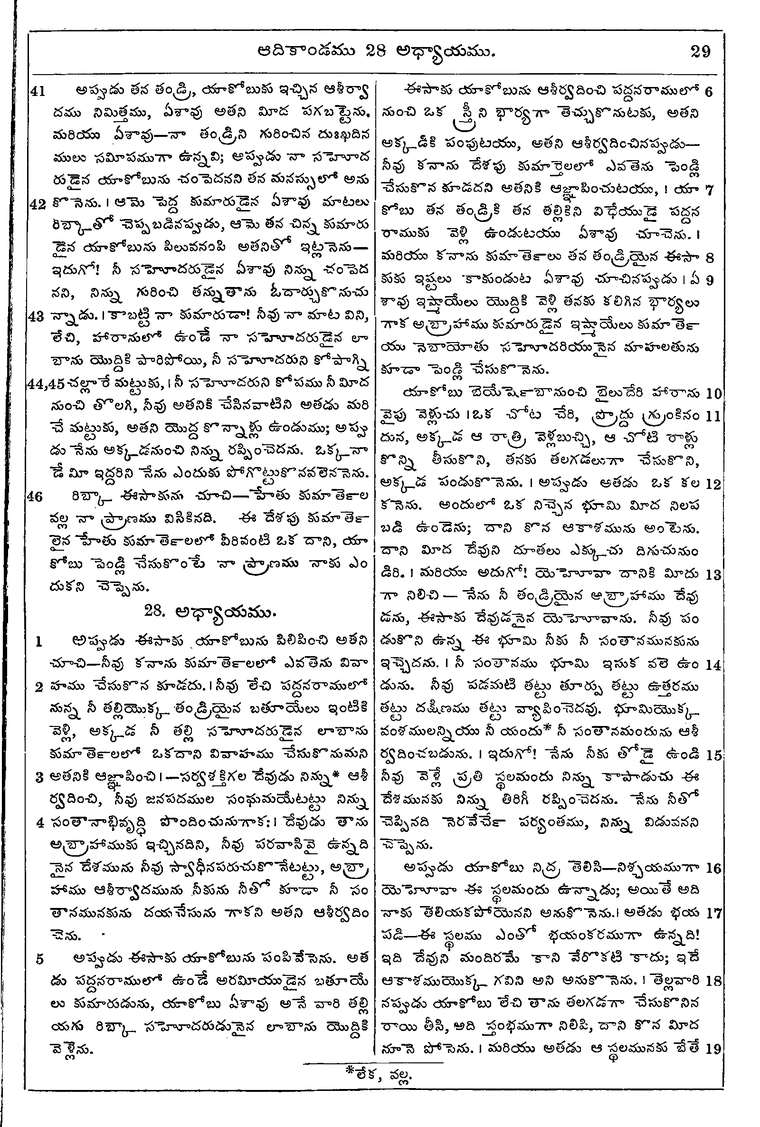 ఆదికాండము 28 అధ్యాయము. 29
41 అప్పడు తన తండ్రి, యాకోబుకు ఇచ్చిన ఆశీర్వా
దము నిమిత్తము, ఏశావు అతని మీద పగబట్టెను.
మరియు ఏశావు—నా తండ్రిని గురించిన దుఃఖదిన
ములు సమీపముగా ఉన్నవి; అప్పడు నా సహోద
రుడైన యాకోబును చంపెదనని తన మనస్సులో అను
42 కొనెను. । ఆమె పెద్ద కుమారుడైన ఏశావు మాటలు
రిబ్కాతో చెప్పబడినప్పడు, ఆమె తన చిన్న కుమారు
డైన యాకోబును పిలువనంపి అతనితో ఇట్లనెను—
ఇదుగో! నీ సహోదరుడైన ఏశావు నిన్ను చంపెద
నని, నిన్ను గురించి తన్నుతాను ఓదార్చుకొనుచు
43 న్నాడు. । కాబట్టి నా కుమారుడా! నీవు నా మాట విని,
లేచి, హారానులో ఉండే నా సహోదరుడైన లా
బాను యొద్దికి పారిపోయి, నీ సహోదరుని కోపాగ్ని
44,45 చల్లారే మట్టుకు, । నీ సహోదరుని కోపము నీ మీద
నుంచి తొలగి, నీవు అతనికి చేసినవాటిని అతడు మరి
చే మట్టుకు, అతని యొద్ద కొన్నాళ్లు ఉండుము; అప్ప
డు నేను అక్కడనుంచి నిన్ను రప్పించెదను. ఒక్కనా
డే మీ ఇద్దరిని నేను ఎందుకు పోగొట్టుకొనవలెననెను.
46 రిబ్కా ఈసాకును చూచి—హేతు కుమార్తెల
వల్ల నా ప్రాణము విసికినది. ఈ దేశపు కుమార్తె
లైన హేతు కుమార్తెలలో వీరివంటి ఒక దాని, యా
కోబు పెండ్లి చేసుకొంటే నా ప్రాణము నాకు ఎం
దుకని చెప్పెను.
28. అధ్యాయము.
1 అప్పడు ఈసాకు యాకోబును పిలిపించి అతని
చూచి—నీవు కనాను కుమార్తెలలో ఎవతెను వివా
2 హము చేసుకొన కూడదు. । నీవు లేచి పద్దనరాములో
నున్న నీ తల్లియొక్క తండ్రియైన బతూయేలు ఇంటికి
వెళ్లి, అక్కడ నీ తల్లి సహోదరుడైన లాబాను
కుమార్తెలలో ఒకదాని వివాహము చేసుకొనుమని
3 అతనికి ఆజ్ఞాపించి । —సర్వశక్తిగల దేవుడు నిన్ను* ఆశీ
ర్వదించి, నీవు జనపదముల సంఘమయేటట్టు నిన్ను
4 సంతానాభివృద్ధి పొందించునుగాక: । దేవుడు తాను
అబ్రాహాముకు ఇచ్చినదిని, నీవు పరవాసివై ఉన్నది
నైన దేశమును నీవు స్వాధీనపరుచుకొనేటట్టు, అబ్రా
హాము ఆశీర్వాదమును నీకును నీతో కూడా నీ సం
తానమునకును దయచేసును గాకని అతని ఆశీర్వదిం
చెను.
5 అప్పడు ఈసాకు యాకోబును పంపివేసెను. అత
డు పద్దనరాములో ఉండే అరమీయుడైన బతూయే
లు కుమారుడును, యాకోబు ఏశావు అనే వారి తల్లి
యగు రిబ్కా సహోదరుడునైన లాబాను యొద్దికి
వెళ్లెను.
ఈసాకు యాకోబును ఆశీర్వదించి పద్దనరాములో 6
నుంచి ఒక స్త్రీని భార్యగా తెచ్చుకొనుటకు, అతని
అక్కడికి పంపుటయు, అతని ఆశీర్వదించినప్పడు—
నీవు కనాను దేశపు కుమార్తెలలో ఎవతెను పెండ్లి
చేసుకొన కూడదని అతనికి ఆజ్ఞాపించుటయు, । యా 7
కోబు తన తండ్రికి తన తల్లికిని విధేయుడై పద్దన
రాముకు వెళ్లి ఉండుటయు ఏశావు చూచెను. ।
మరియు కనాను కుమార్తెలు తన తండ్రియైన ఈసా 8
కుకు ఇష్టలు కాకుండుట ఏశావు చూచినప్పడు । ఏ 9
శావు ఇష్మాయేలు యొద్దికి వెళ్లి తనకు కలిగిన భార్యలు
గాక అబ్రాహాము కుమారుడైన ఇష్మాయేలు కుమార్తె
యు నెబాయోతు సహోదరియునైన మాహలతును
కూడా పెండ్లి చేసుకొనెను.
యాకోబు బెయేర్షెబానుంచి బైలుదేరి హారాను 10
వైపు వెళ్లుచు । ఒక చోట చేరి, ప్రొద్దు గ్రుంకినం 11
దున, అక్కడ ఆ రాత్రి వెళ్లబుచ్చి, ఆ చోటి రాళ్లు
కొన్ని తీసుకొని, తనకు తలగడలుగా చేసుకొని,
అక్కడ పండుకొనెను. । అప్పడు అతడు ఒక కల 12
కనెను. అందులో ఒక నిచ్చెన భూమి మీద నిలప
బడి ఉండెను; దాని కొన ఆకాశమును అంటెను.
దాని మీద దేవుని దూతలు ఎక్కుచు దిగుచునుం
డిరి. । మరియు అదుగో! యెహోవా దానికి మీదు 13
గా నిలిచి — నేను నీ తండ్రియైన అబ్రాహాము దేవు
డను, ఈసాకు దేవుడనైన యెహోవాను. నీవు పం
డుకొని ఉన్న ఈ భూమి నీకు నీ సంతానమునకును
ఇచ్చెదను. । నీ సంతానము భూమి ఇసుక వలె ఉం 14
డును. నీవు పడమటి తట్టు తూర్పు తట్టు ఉత్తరము
తట్టు దక్షిణము తట్టు వ్యాపించెదవు. భూమియొక్క
వంశములన్నియు నీ యందు* నీ సంతానమందును ఆశీ
ర్వదించబడును. । ఇదుగో! నేను నీకు తోడై ఉండి 15
నీవు వెళ్లే ప్రతి స్థలమందు నిన్ను కాపాడుచు ఈ
దేశమునకు నిన్ను తిరిగీ రప్పించెదను. నేను నీతో
చెప్పినది నెరవేర్చే పర్యంతము, నిన్ను విడువనని
చెప్పెను.
అప్పడు యాకోబు నిద్ర తెలిసి—నిశ్చయముగా 16
యెహోవా ఈ స్థలమందు ఉన్నాడు; అయితే అది
నాకు తెలియకపోయెనని అనుకొనెను. । అతడు భయ 17
పడి—ఈ స్థలము ఎంతో భయంకరముగా ఉన్నది!
ఇది దేవుని మందిరమే కాని వేరొకటి కాదు; ఇదే
ఆకాశముయొక్క గవిని అని అనుకొనెను. । తెల్లవారి 18
నప్పడు యాకోబు లేచి తాను తలగడగా చేసుకొనిన
రాయి తీసి, అది స్తంభముగా నిలిపి, దాని కొన మీద
నూనె పోసెను. । మరియు అతడు ఆ స్థలమునకు బేతే 19
*లేక, వల్ల.